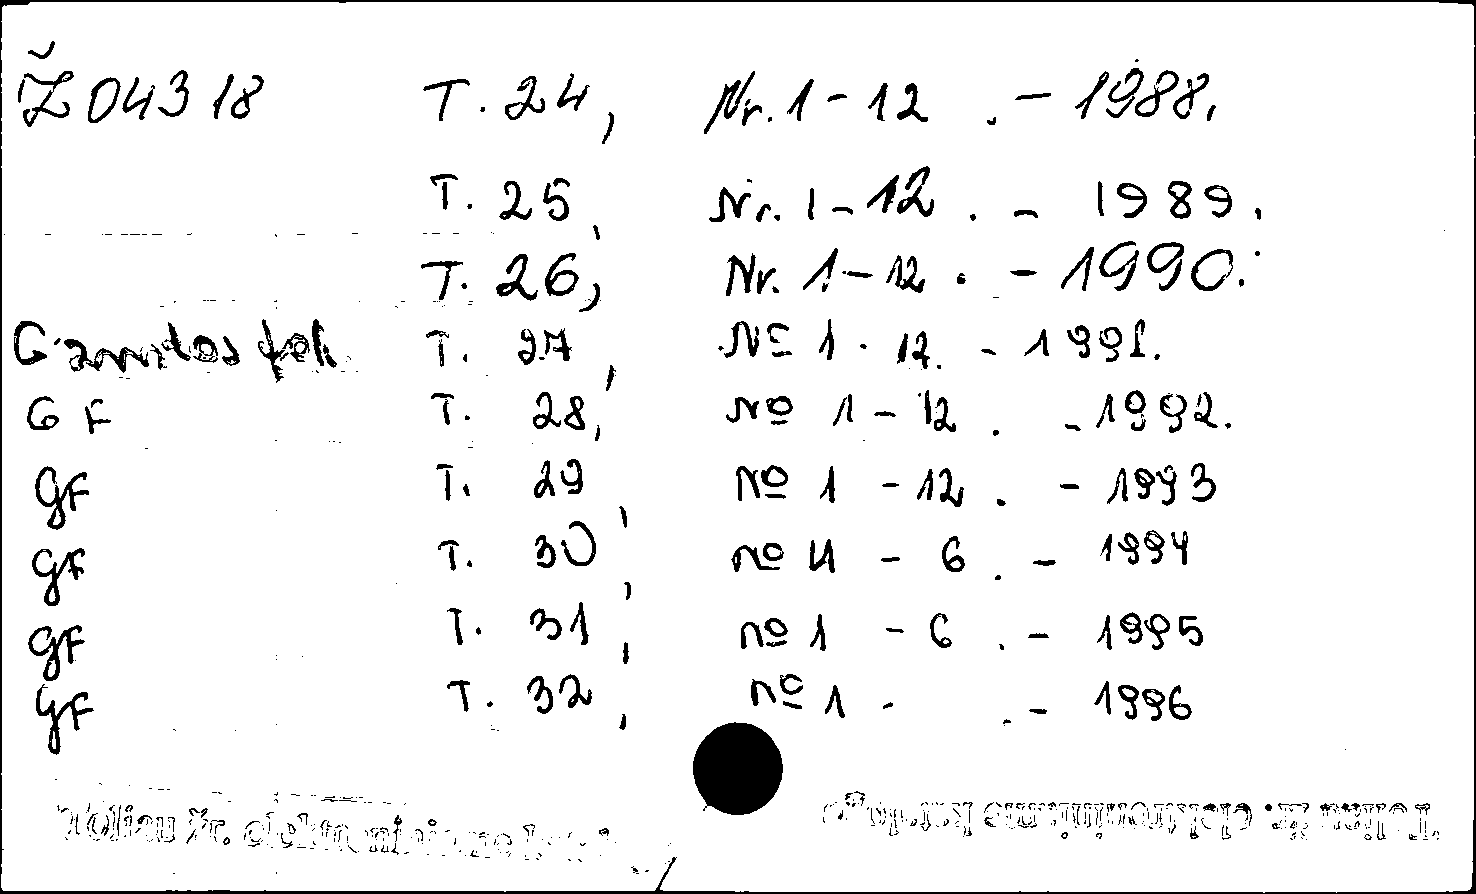 Ž 04318 T. 24, Nr. 1 - 12 . - 1988.
T. 25, Nr. 1 - 12 . - 1989.
T. 26, Nr. 1 - 12 . - 1990.
Gamtos fak. T. 27, № 1 - 12. - 1991.
GF T. 28, № 1 - 12 . - 1992.
GF T. 29, № 1 - 12 . - 1993
GF T. 30, № 4 - 6 . - 1994
GF T. 31, № 1 - 6 . - 1995
GF T. 32, № 1 - . - 1996
Toliau žr. elektroniniame
Toliau žr. elektroniniame kataloge